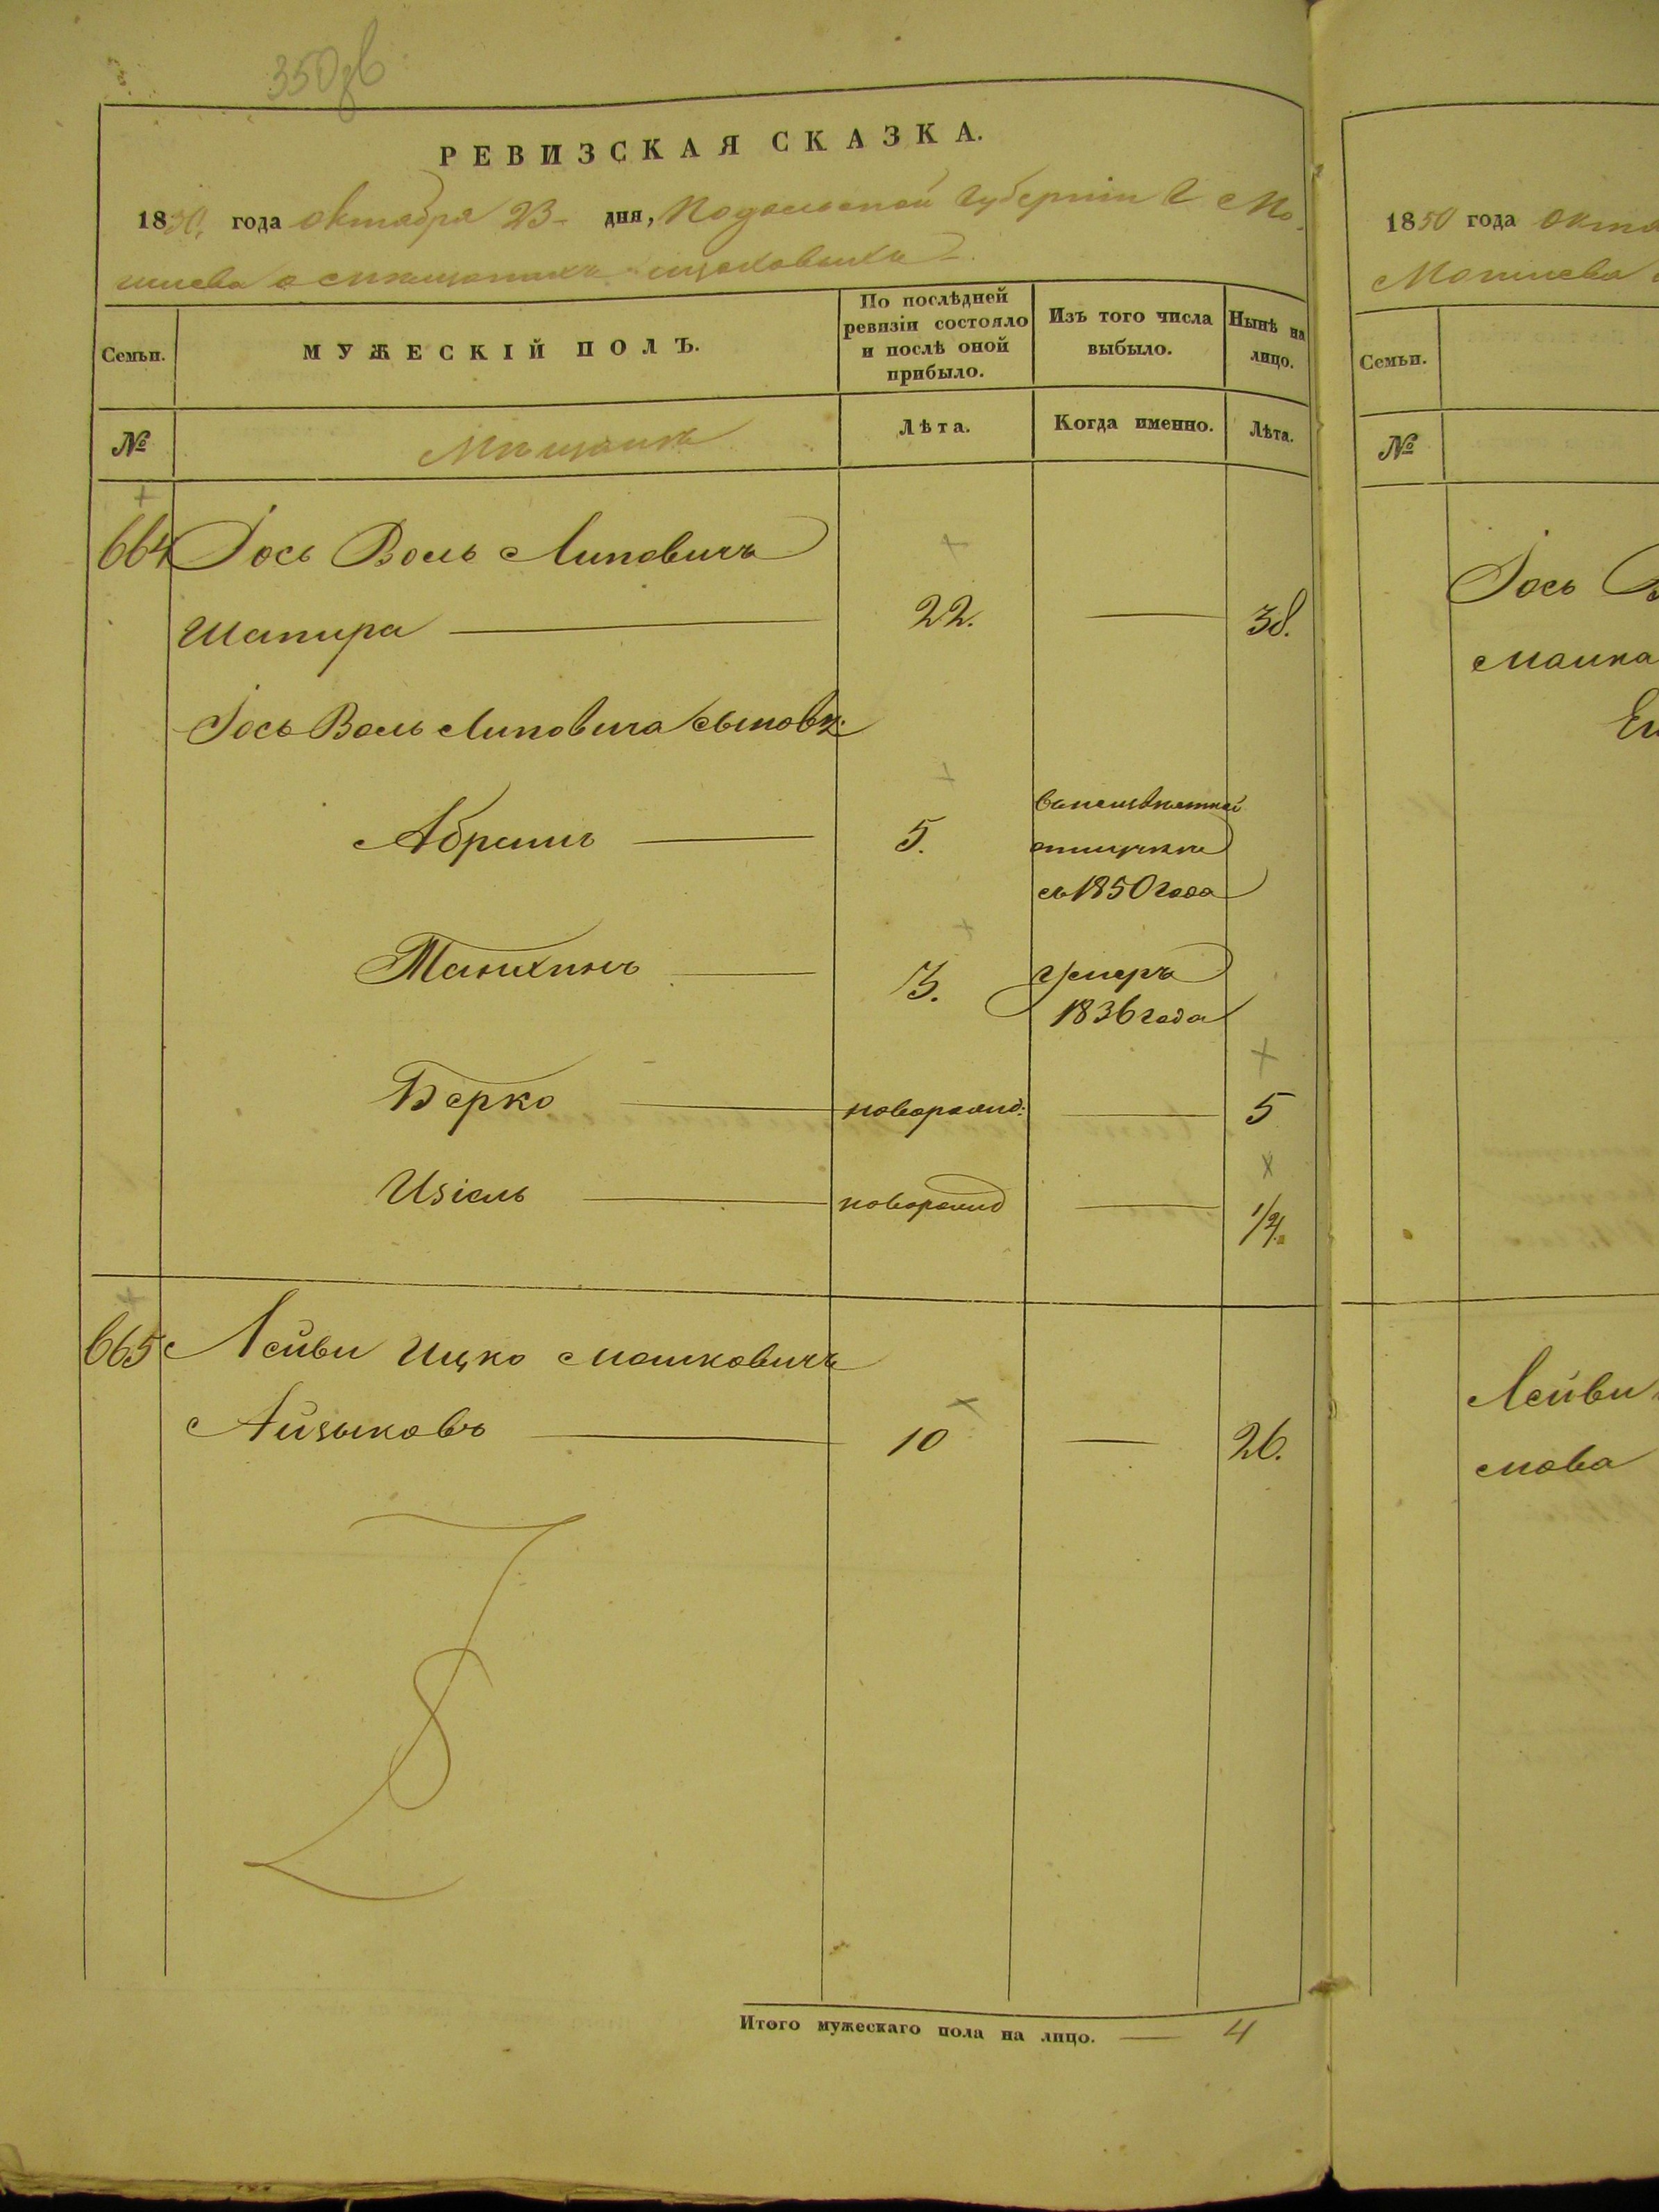 350 об
РЕВИЗСКАЯ СКАЗКА.
1850 года октября 23 дня, Подольской Губернiи Г. Мо-
гилева о мѣщанахъ
Семьи.
МУЖЕСКIЙ ПОЛЪ.
По послѣдней ревизiи состояло и послѣ оной прибыло.
Изъ того числа выбыло.
Нынѣ на лицо.
№
Мѣщане
Лѣта.
Когда именно.
Лѣта.
664 Iось Воль Липовичъ
Шапира — 22. — 38.
Iось Воль Липовича сыновья:
Абрамъ — 5.
отлучкѣ
съ 1850 года
3. умеръ
1836 года
Берко — новорожд: — 5
Изiель — новорожд — 1/2.
665 Лейви Ицко Мошковичъ
Айзыковъ — 10 — 26.
Итого мужескаго пола на лицо. — 4
1850 года
Могилева
Семьи.
№
Iось
Лейви